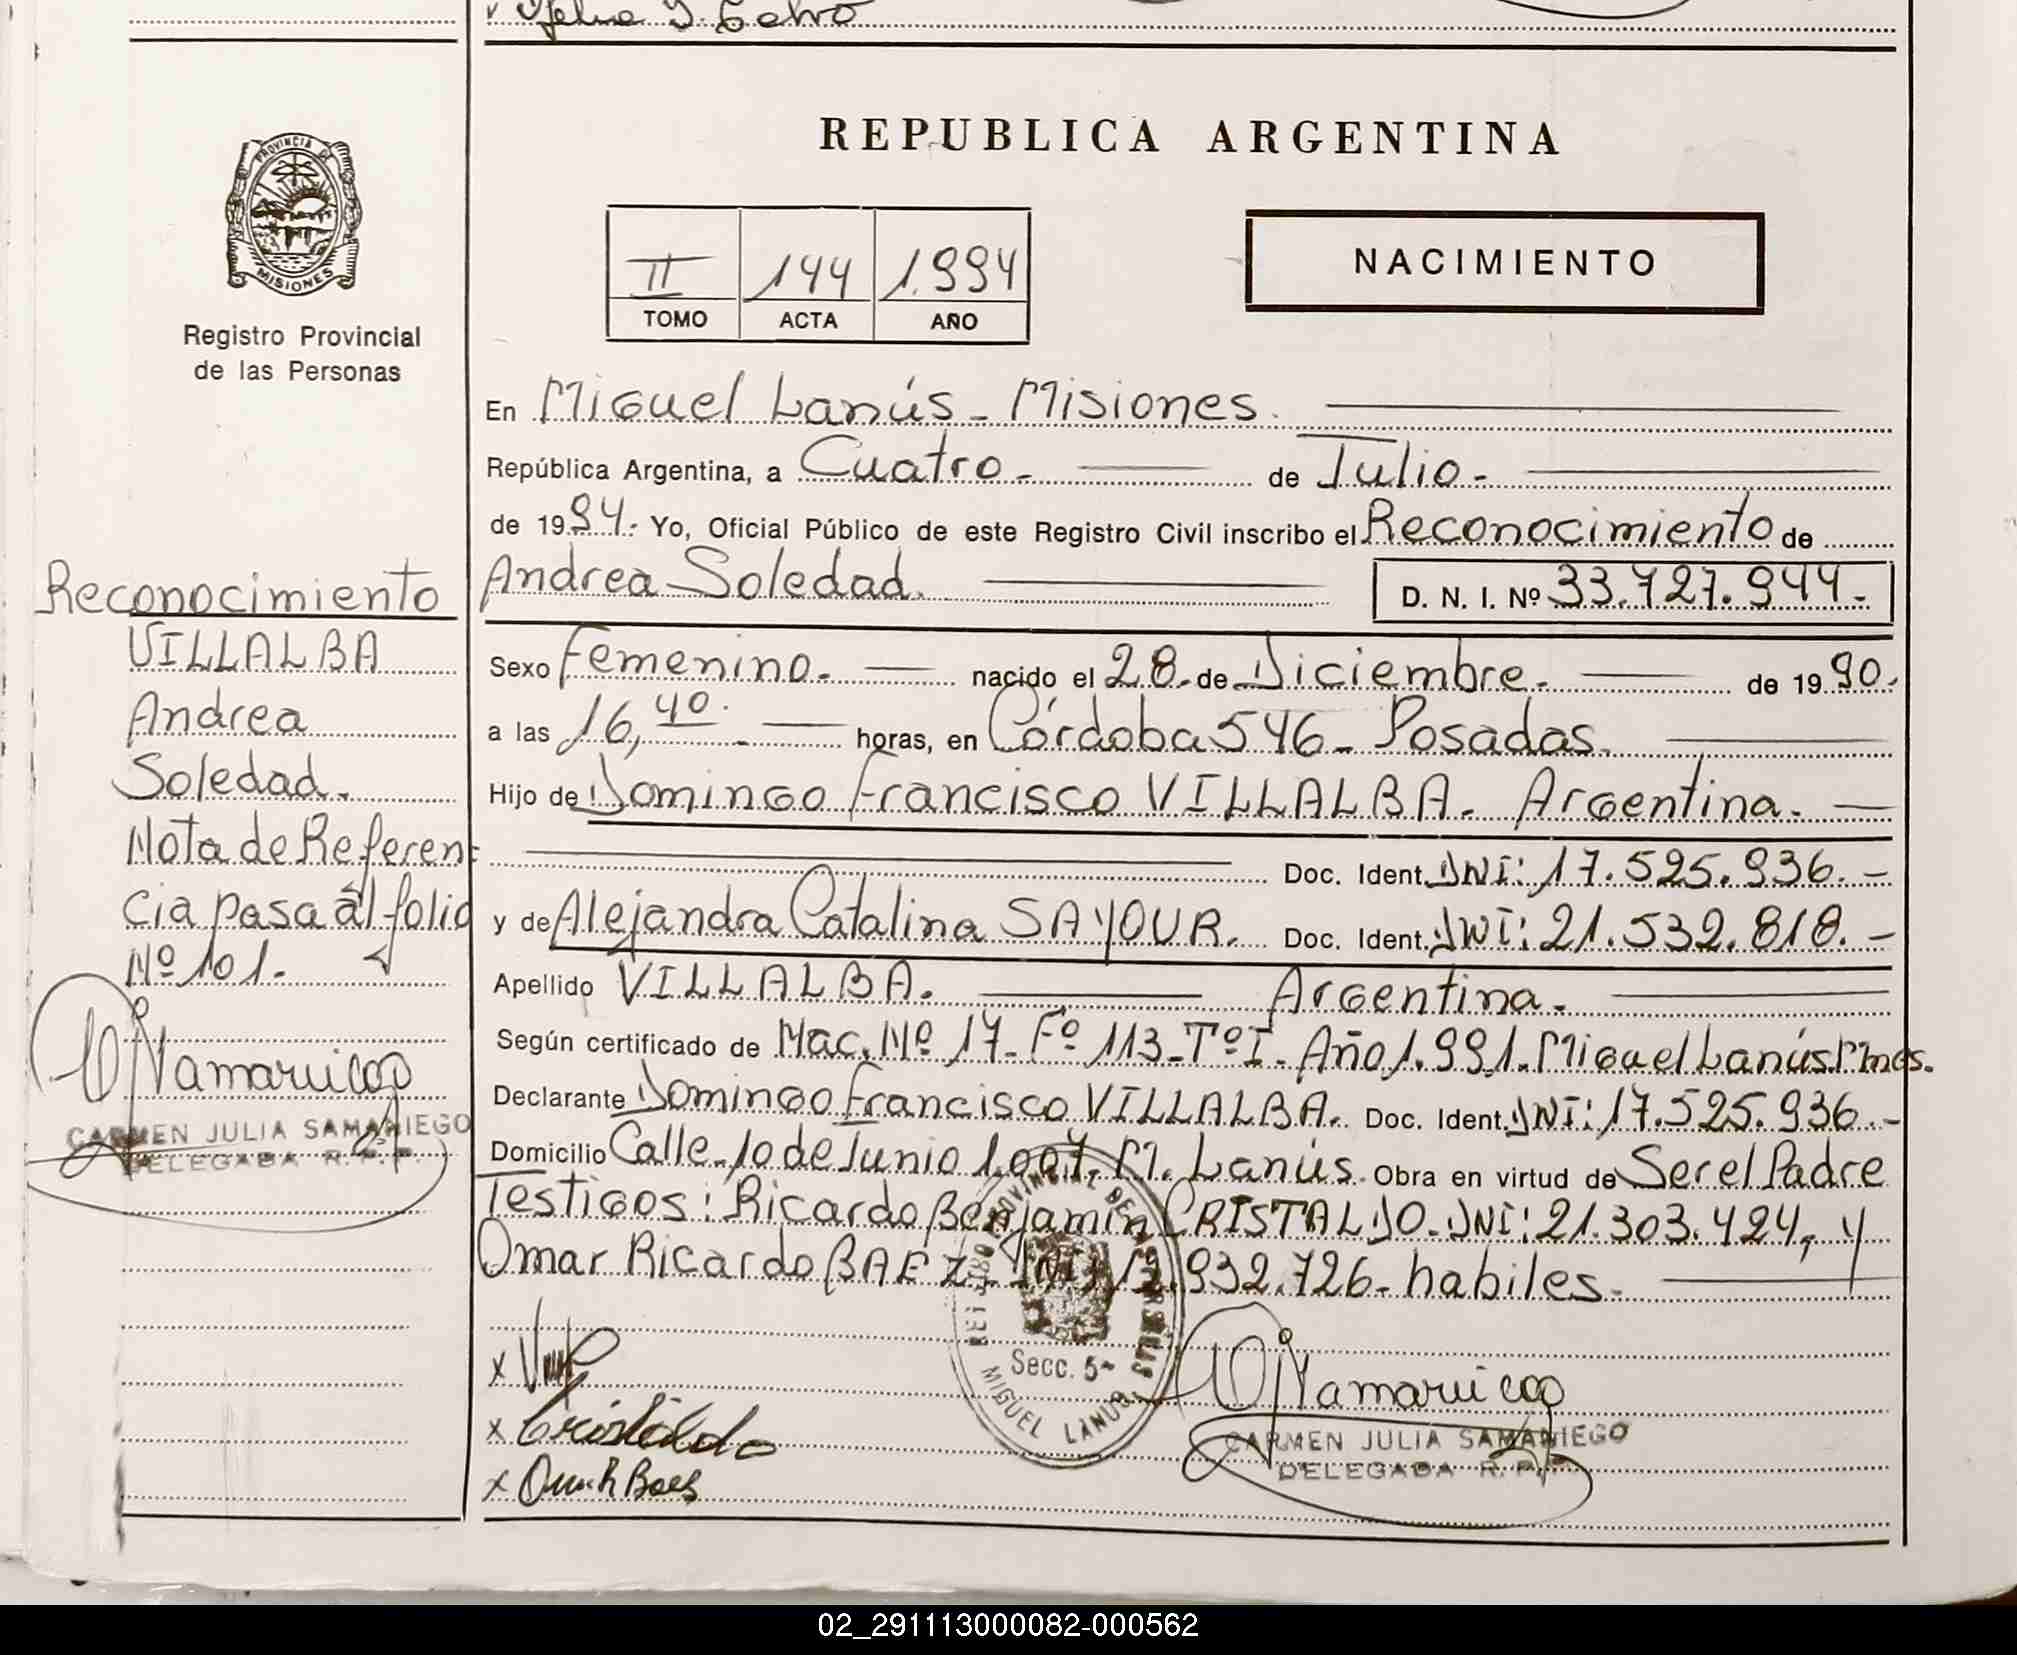 REPUBLICA ARGENTINA
PROVINCIA DE
MISIONES
Registro Provincial
de las Personas
II 144 1.994
TOMO ACTA AÑO
NACIMIENTO
En Miguel Lanús - Misiones.
República Argentina, a Cuatro. de Julio.
de 1994. Yo, Oficial Público de este Registro Civil inscribo el Reconocimiento de
Andrea Soledad. D. N. I. Nº 33.727.944.
Sexo Femenino. nacido el 28. de Diciembre. de 1990.
a las 16,40. horas, en Córdoba 546 - Posadas.
Hijo de Domingo Francisco VILLALBA. Argentina.
Doc. Ident. DNI: 17.525.936.
y de Alejandra Catalina SAYOUR. Doc. Ident. DNI: 21.532.818.
Apellido VILLALBA. Argentina.
Según certificado de Nac. Nº 17 - Fº 113 - Tº I - Año 1.991. Miguel Lanús Mnes.
Declarante Domingo Francisco VILLALBA. Doc. Ident. DNI: 17.525.936.
Domicilio Calle 10 de Junio 1.007. M. Lanús. Obra en virtud de Ser el Padre
Testigos: Ricardo Benjamin CRISTALDO. DNI: 21.303.424, y
Omar Ricardo BAEZ - habiles.
Secc. 5
MIGUEL LANUS
x
x Cristaldo
x
CARMEN JULIA SAMANIEGO
DELEGADA R. P. P.
Reconocimiento
VILLALBA
Andrea
Soledad.
Nota de Referen
cia pasa al folio
Nº 101.
CARMEN JULIA SAMANIEGO
DELEGADA R. P. P.
02_291113000082-000562